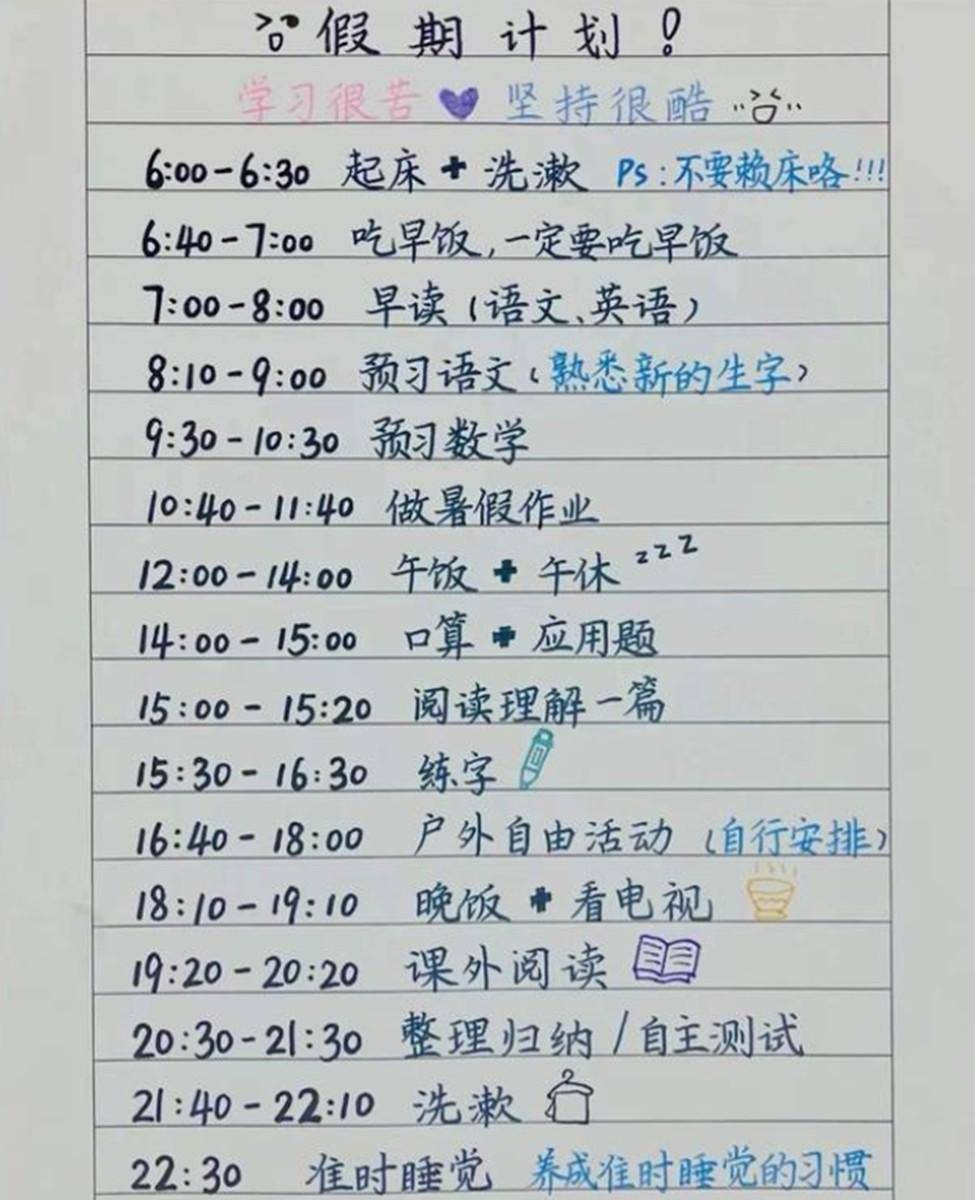 假期计划!
学习很苦 坚持很酷
6:00-6:30 起床+洗漱 Ps:不要赖床咯!!!
6:40-7:00 吃早饭,一定要吃早饭
7:00-8:00 早读(语文、英语)
8:10-9:00 预习语文(熟悉新的生字)
9:30-10:30 预习数学
10:40-11:40 做暑假作业
12:00-14:00 午饭+午休 zzz
14:00-15:00 口算+应用题
15:00-15:20 阅读理解一篇
15:30-16:30 练字
16:40-18:00 户外自由活动(自行安排)
18:10-19:10 晚饭+看电视
19:20-20:20 课外阅读
20:30-21:30 整理归纳/自主测试
21:40-22:10 洗漱
22:30 准时睡觉 养成准时睡觉的习惯